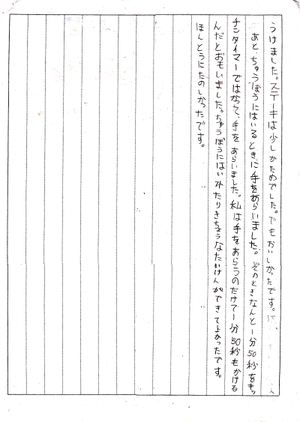 うけました。ステーキは少しかためでした。でもおいしかたです。
あと、ちゅうぼうにはいるときに手をあらいました。そのときなんと一分50秒をキッ
チンタイマーではかって、手をあらいました。私は手をあらうのだけで一分50秒もかける
んだとおもいました。ちゅうぼうにはいれたりきちょうなたいけんができてよかったです。
ほんとうにたのしかったです。